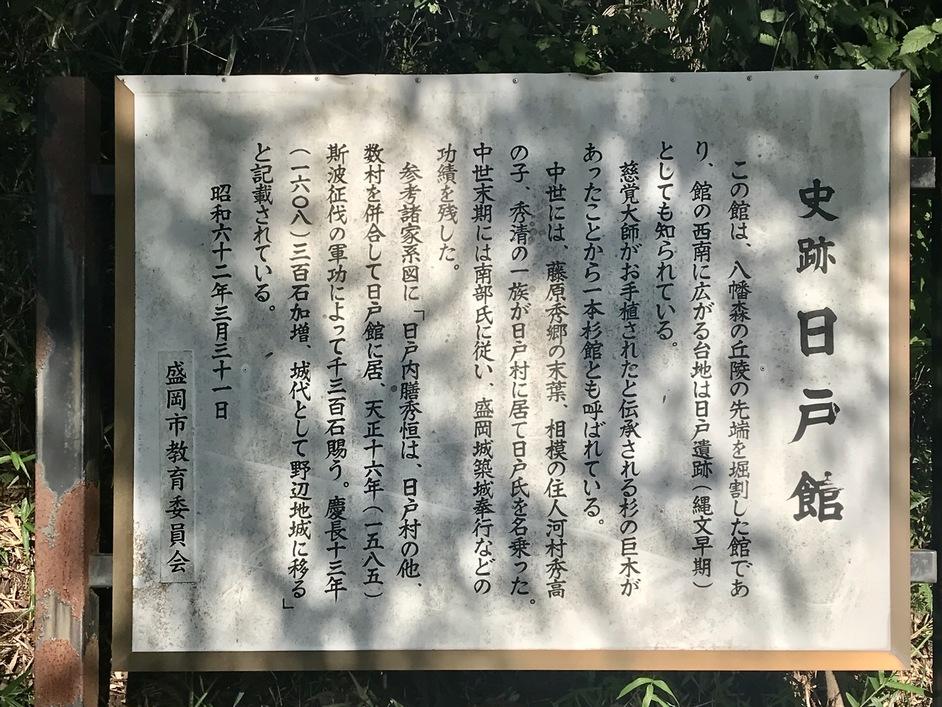 史跡 日戸館
この館は、八幡森の丘陵の先端を堀割した館であ
り、館の西南に広がる台地は日戸遺跡(縄文早期)
としても知られている。
慈覚大師がお手植されたと伝承される杉の巨木が
あったことから一本杉館とも呼ばれている。
中世には、藤原秀郷の末葉、相模の住人河村秀高
の子、秀清の一族が日戸村に居て日戸氏を名乗った。
中世末期には南部氏に従い、盛岡城築城奉行などの
功績を残した。
参考諸家系図に「日戸内膳秀恒は、日戸村の他、
数村を併合して日戸館に居、天正十六年(一五八五)
斯波征伐の軍功によって千三百石賜う。慶長十三年
(一六〇八)三百石加増、城代として野辺地城に移る」
と記載されている。
昭和六十二年三月三十一日
盛岡市教育委員会